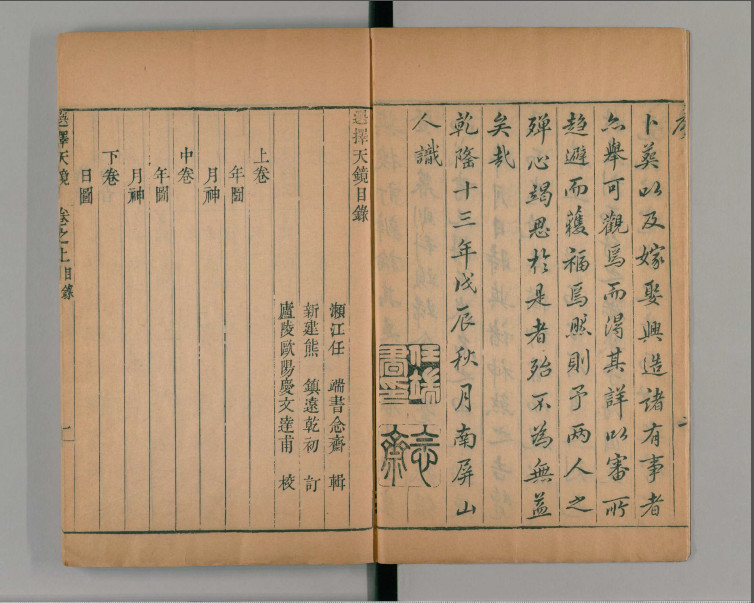 序
卜葬以及嫁娶興造諸有事者
亦舉可觀焉而得其詳以審所
趨避而獲福焉然則予兩人之
殫心竭思於是者殆不為無益
矣哉
乾隆十三年戊辰秋月南屏山
人識
任端書印
念齋
二
選擇天鏡目錄
瀨江任 端書念齋 輯
新建熊 鎮遠乾初 訂
廬陵歐陽慶文達甫 校
上卷
年圖
月神
中卷
年圖
月神
下卷
日圖
選擇天鏡 卷之上目錄 一